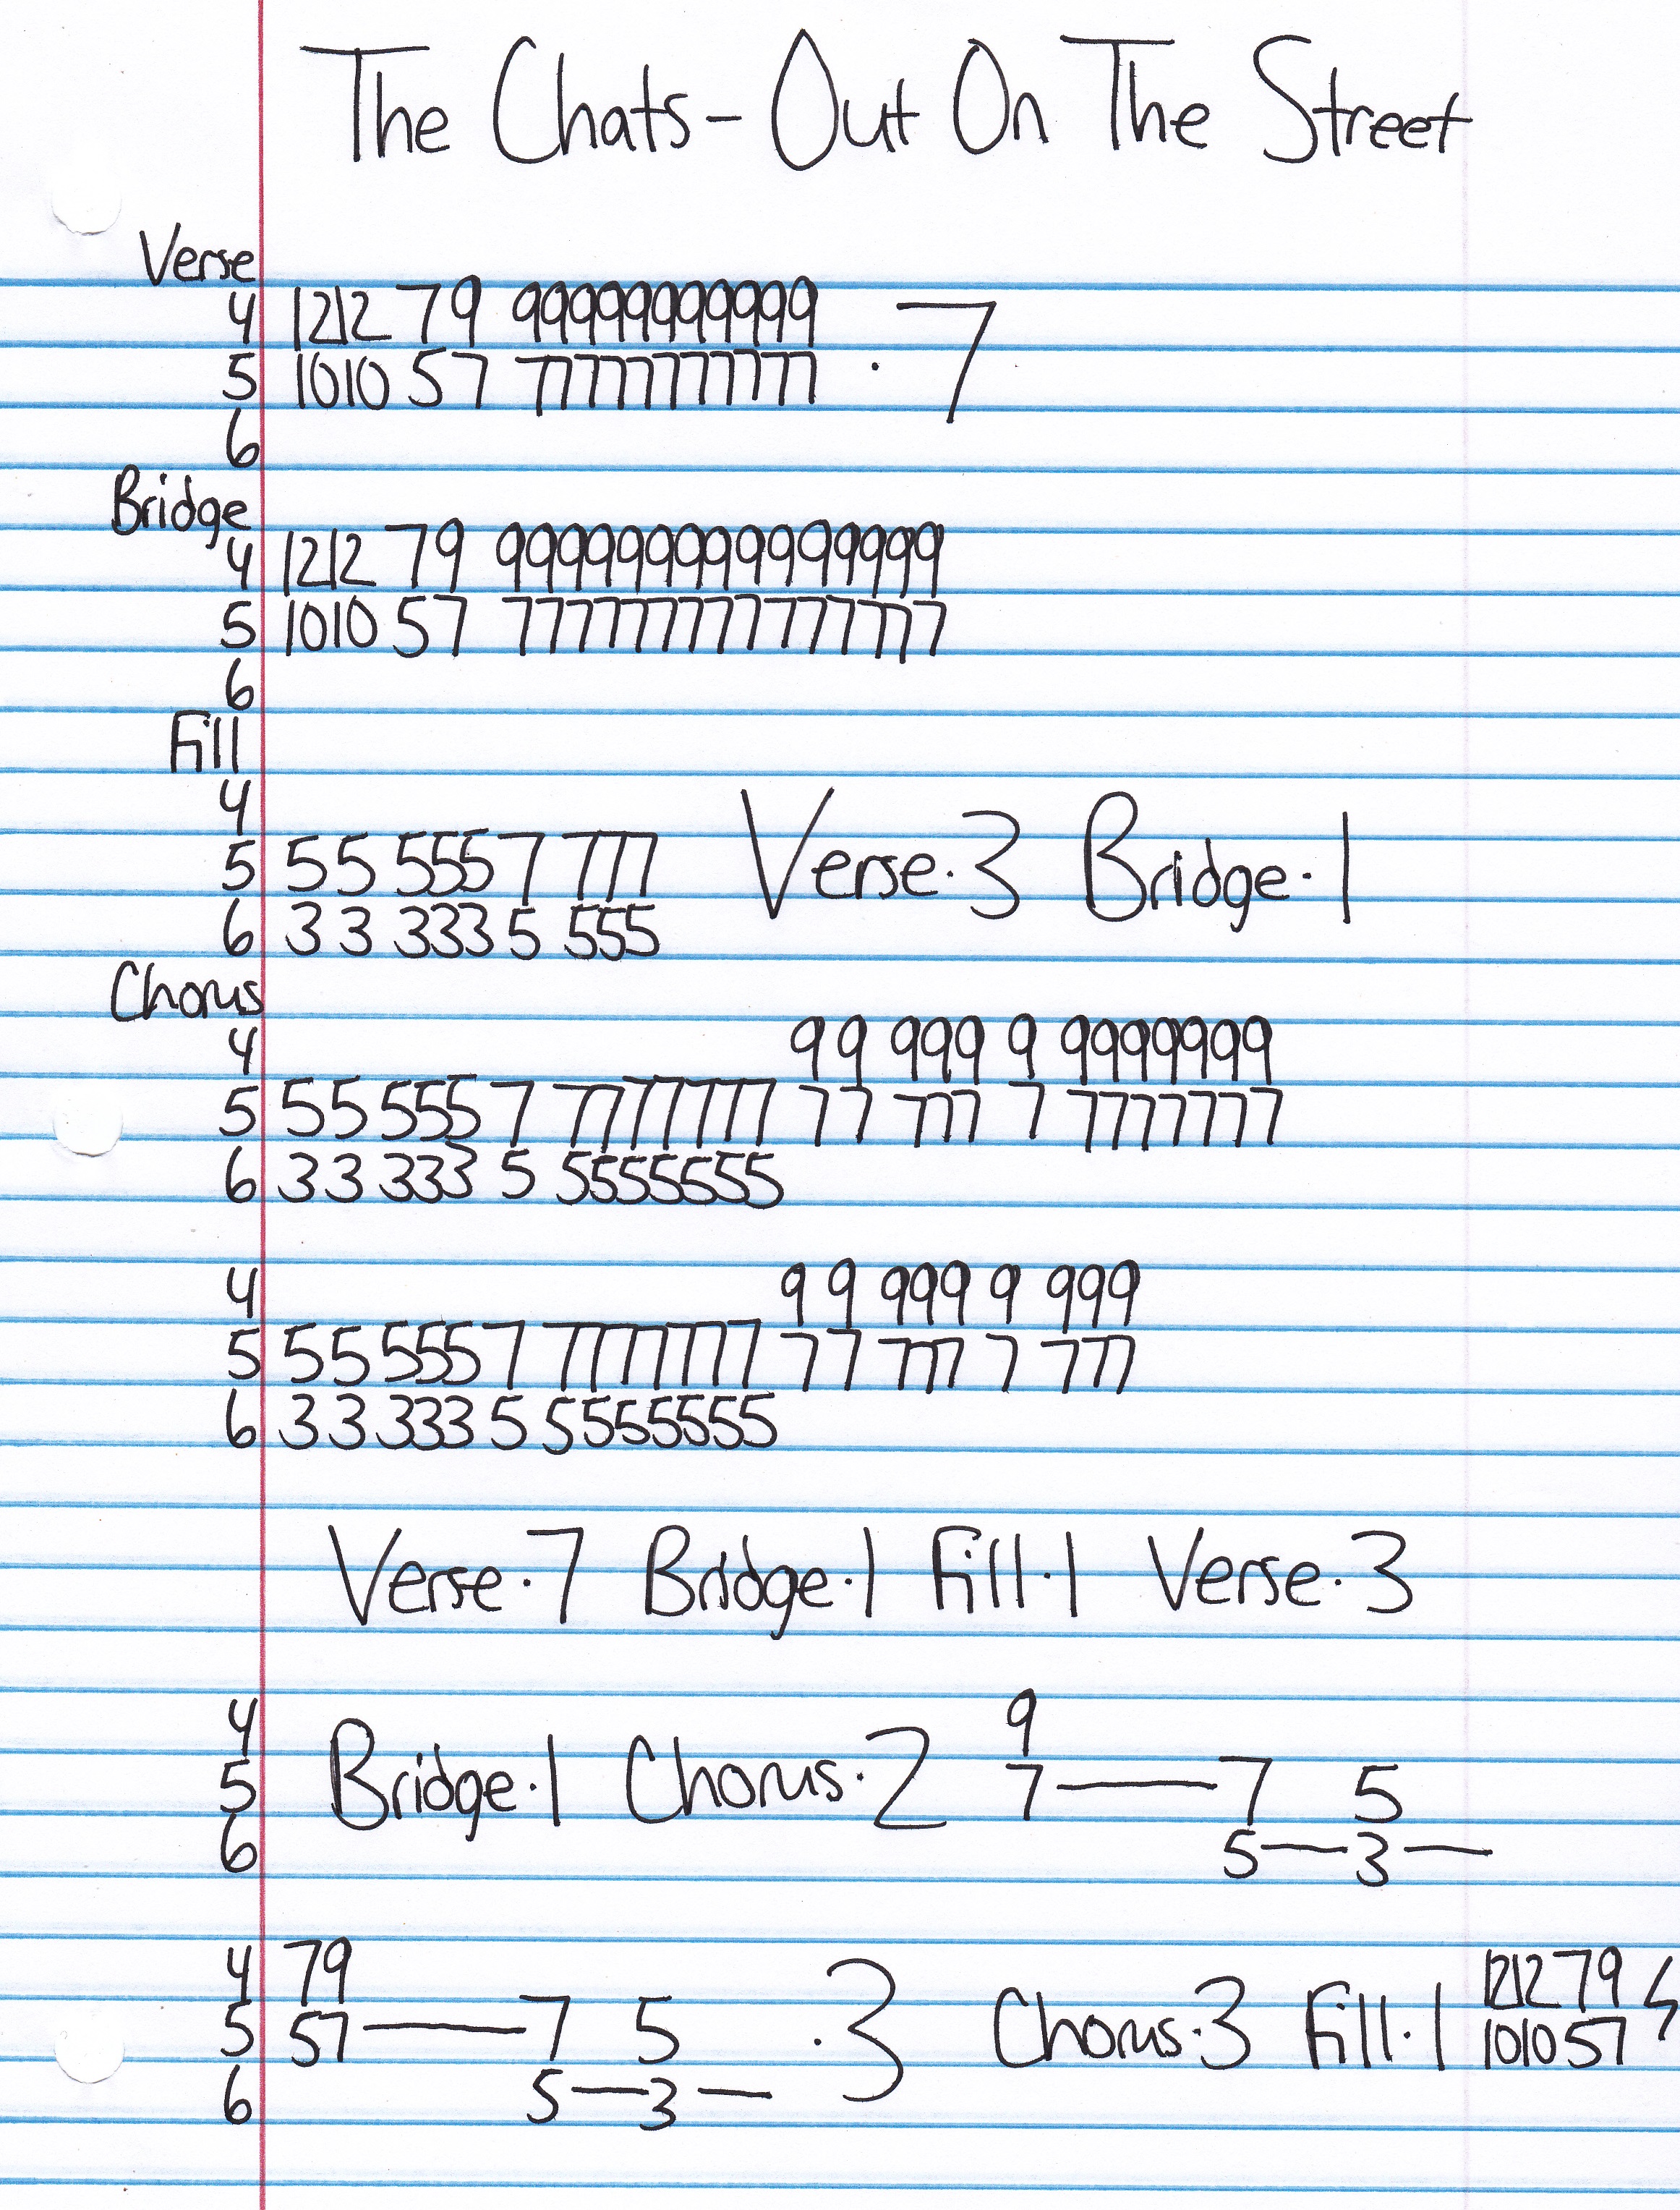 The Chats - Out On The Street
Verse
4 1212 79 99999999999
5 1010 57 77777777777 · 7
6
Bridge
4 1212 79 999999999999999
5 1010 57 777777777777777
6
Fill
4
5 5 5 555 7 777 Verse·3 Bridge·1
6 3 3 333 5 555
Chorus
4 9 9 999 9 9999999
5 5 5 555 7 7777777 7 7 777 7 7777777
6 3 3 333 5 5555555
4 9 9 999 9 999
5 5 5 555 7 7777777 7 7 777 7 777
6 3 3 333 5 5555555
Verse·7 Bridge·1 Fill·1 Verse·3
4 9
5 Bridge·1 Chorus·2 7 — 7 5
6 5 — 3 —
4 79 1212 79
5 57 — 7 5 ·3 Chorus·3 Fill·1 1010 57
6 5 — 3 —